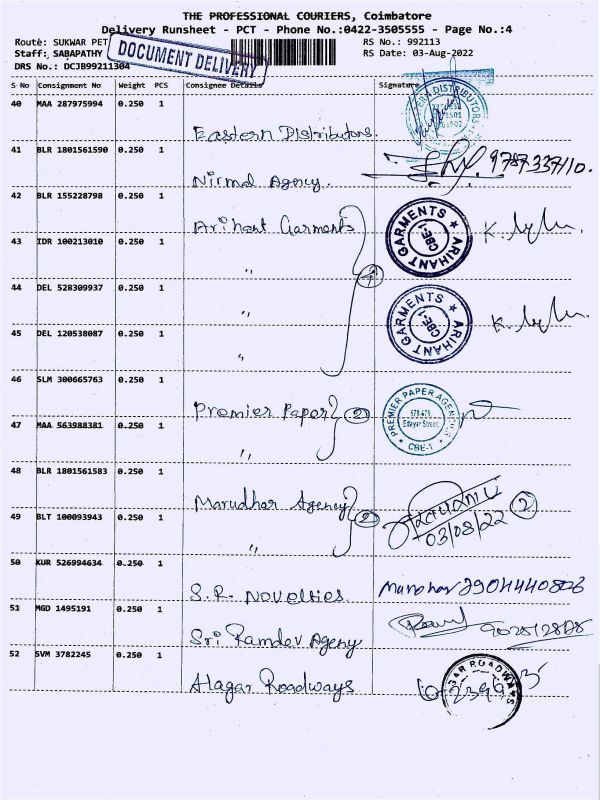 THE PROFESSIONAL COURIERS, Coimbatore
Delivery Runsheet - PCT - Phone No.:0422-3505555 - Page No.:4
Route: SUKWAR PET
RS No.: 992113
Staff: SABAPATHY
RS Date: 03-Aug-2022
DRS No.: DCJB99211304
DOCUMENT DELIVERY
S No Consignment No Weight PCS Consignee Details Signature
40 MAA 287975994 0.250 1
DISTRIBUTORS
Eastern Distributors.
41 BLR 1801561590 0.250 1
9787337110.
Nirmal Agency.
42 BLR 155228798 0.250 1
Arihant Garments
ARIHANT GARMENTS ★ CBE-1
43 IDR 100213010 0.250 1
" 4
44 DEL 528309937 0.250 1
"
ARIHANT GARMENTS ★ CBE-1
45 DEL 120538087 0.250 1
"
46 SLM 300665763 0.250 1
Premier Paper 2
PREMIER PAPER Edayar Street, CBE-1
47 MAA 563988381 0.250 1
"
48 BLR 1801561583 0.250 1
Marudhar Agency 2
2
49 BLT 100093943 0.250 1
03/08/22
"
50 KUR 526994634 0.250 1
S.R. Novelties.
Manohar
51 MGD 1495191 0.250 1
Sri Ramdev Ageny
52 SVM 3782245 0.250 1
Alagar Roadways
GAR ROADWAYS